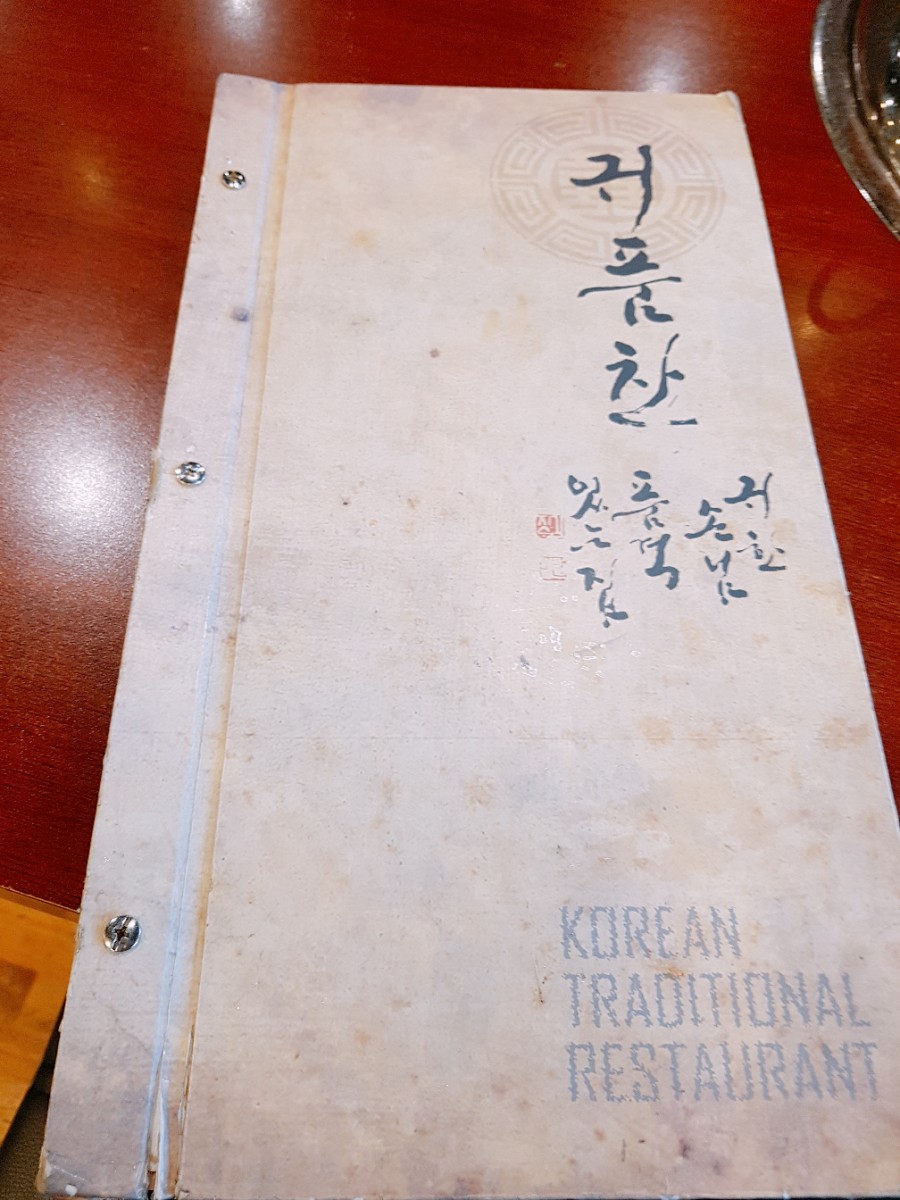 귀품찬
귀한
손님
품격
있는 집
KOREAN
TRADITIONAL
RESTAURANT